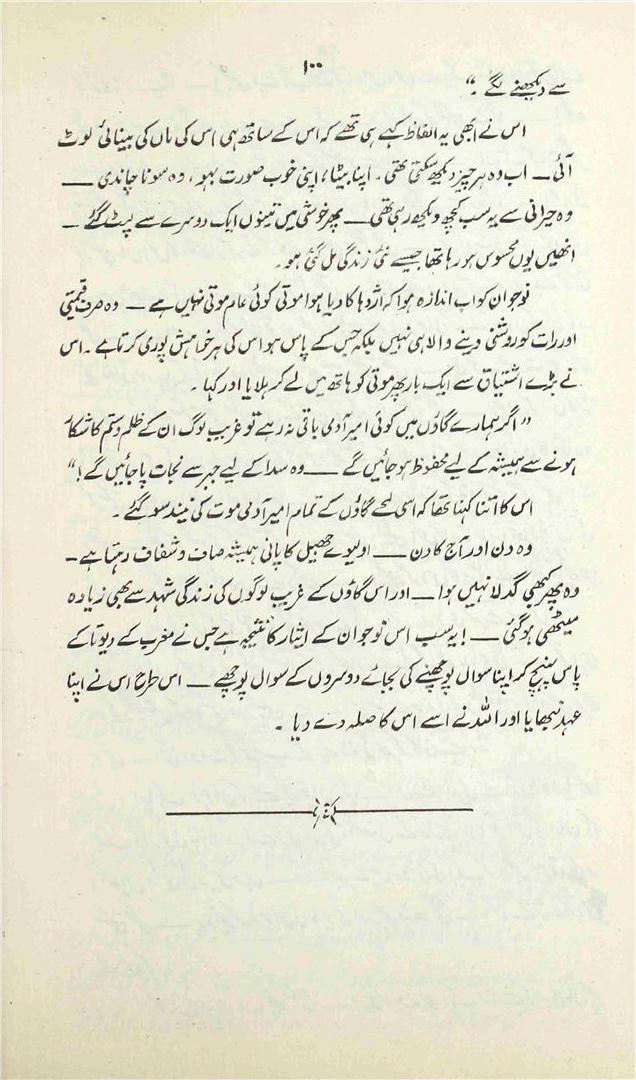 ۱۰۰
سے دیکھنے لگے ۔"
اس نے ابھی یہ الفاظ کہے ہی تھے کہ اس کے ساتھ ہی اس کی ماں کی بینائی لوٹ
آئی ــ اب وہ ہر چیز دیکھ سکتی تھی ۔ اپنا بیٹا، اپنی خوب صورت بہو، وہ سونا چاندی ــ
وہ حیرانی سے یہ سب کچھ دیکھ رہی تھی ــ پھر خوشی میں تینوں ایک دوسرے سے لپٹ گئے ــ
انھیں یوں محسوس ہو رہا تھا جیسے نئی زندگی مل گئی ہو ۔
نوجوان کو اب اندازہ ہوا کہ اژدہا کا دیا ہوا موتی کوئی عام موتی نہیں ہے ــ وہ صرف قیمتی
اور رات کو روشنی دینے والا ہی نہیں بلکہ جس کے پاس ہو اس کی ہر خواہش پوری کرتا ہے ۔ اس
نے بڑے اشتیاق سے ایک بار پھر موتی کو ہاتھ میں لے کر ہلایا اور کہا ۔
"اگر ہمارے گاؤں میں کوئی امیر آدمی باقی نہ رہے تو غریب لوگ ان کے ظلم و ستم کا شکار
ہونے سے ہمیشہ کے لیے محفوظ ہو جائیں گے ــ وہ سدا کے لیے جبر سے نجات پا جائیں گے !"
اس کا اتنا کہنا تھا کہ اسی لمحے گاؤں کے تمام امیر آدمی موت کی نیند سو گئے ۔
وہ دن اور آج کا دن ــ اولیوے جھیل کا پانی ہمیشہ صاف و شفاف رہتا ہے ــ
وہ پھر کبھی گدلا نہیں ہوا ــ اور اس گاؤں کے غریب لوگوں کی زندگی شہد سے بھی زیادہ
میٹھی ہو گئی ــ ! یہ سب اس نوجوان کے ایثار کا نتیجہ ہے جس نے مغرب کے دیوتا کے
پاس پہنچ کر اپنا سوال پوچھنے کی بجائے دوسروں کے سوال پوچھے ــ اس طرح اس نے اپنا
عہد نبھایا اور اللہ نے اسے اس کا صلہ دے دیا ۔